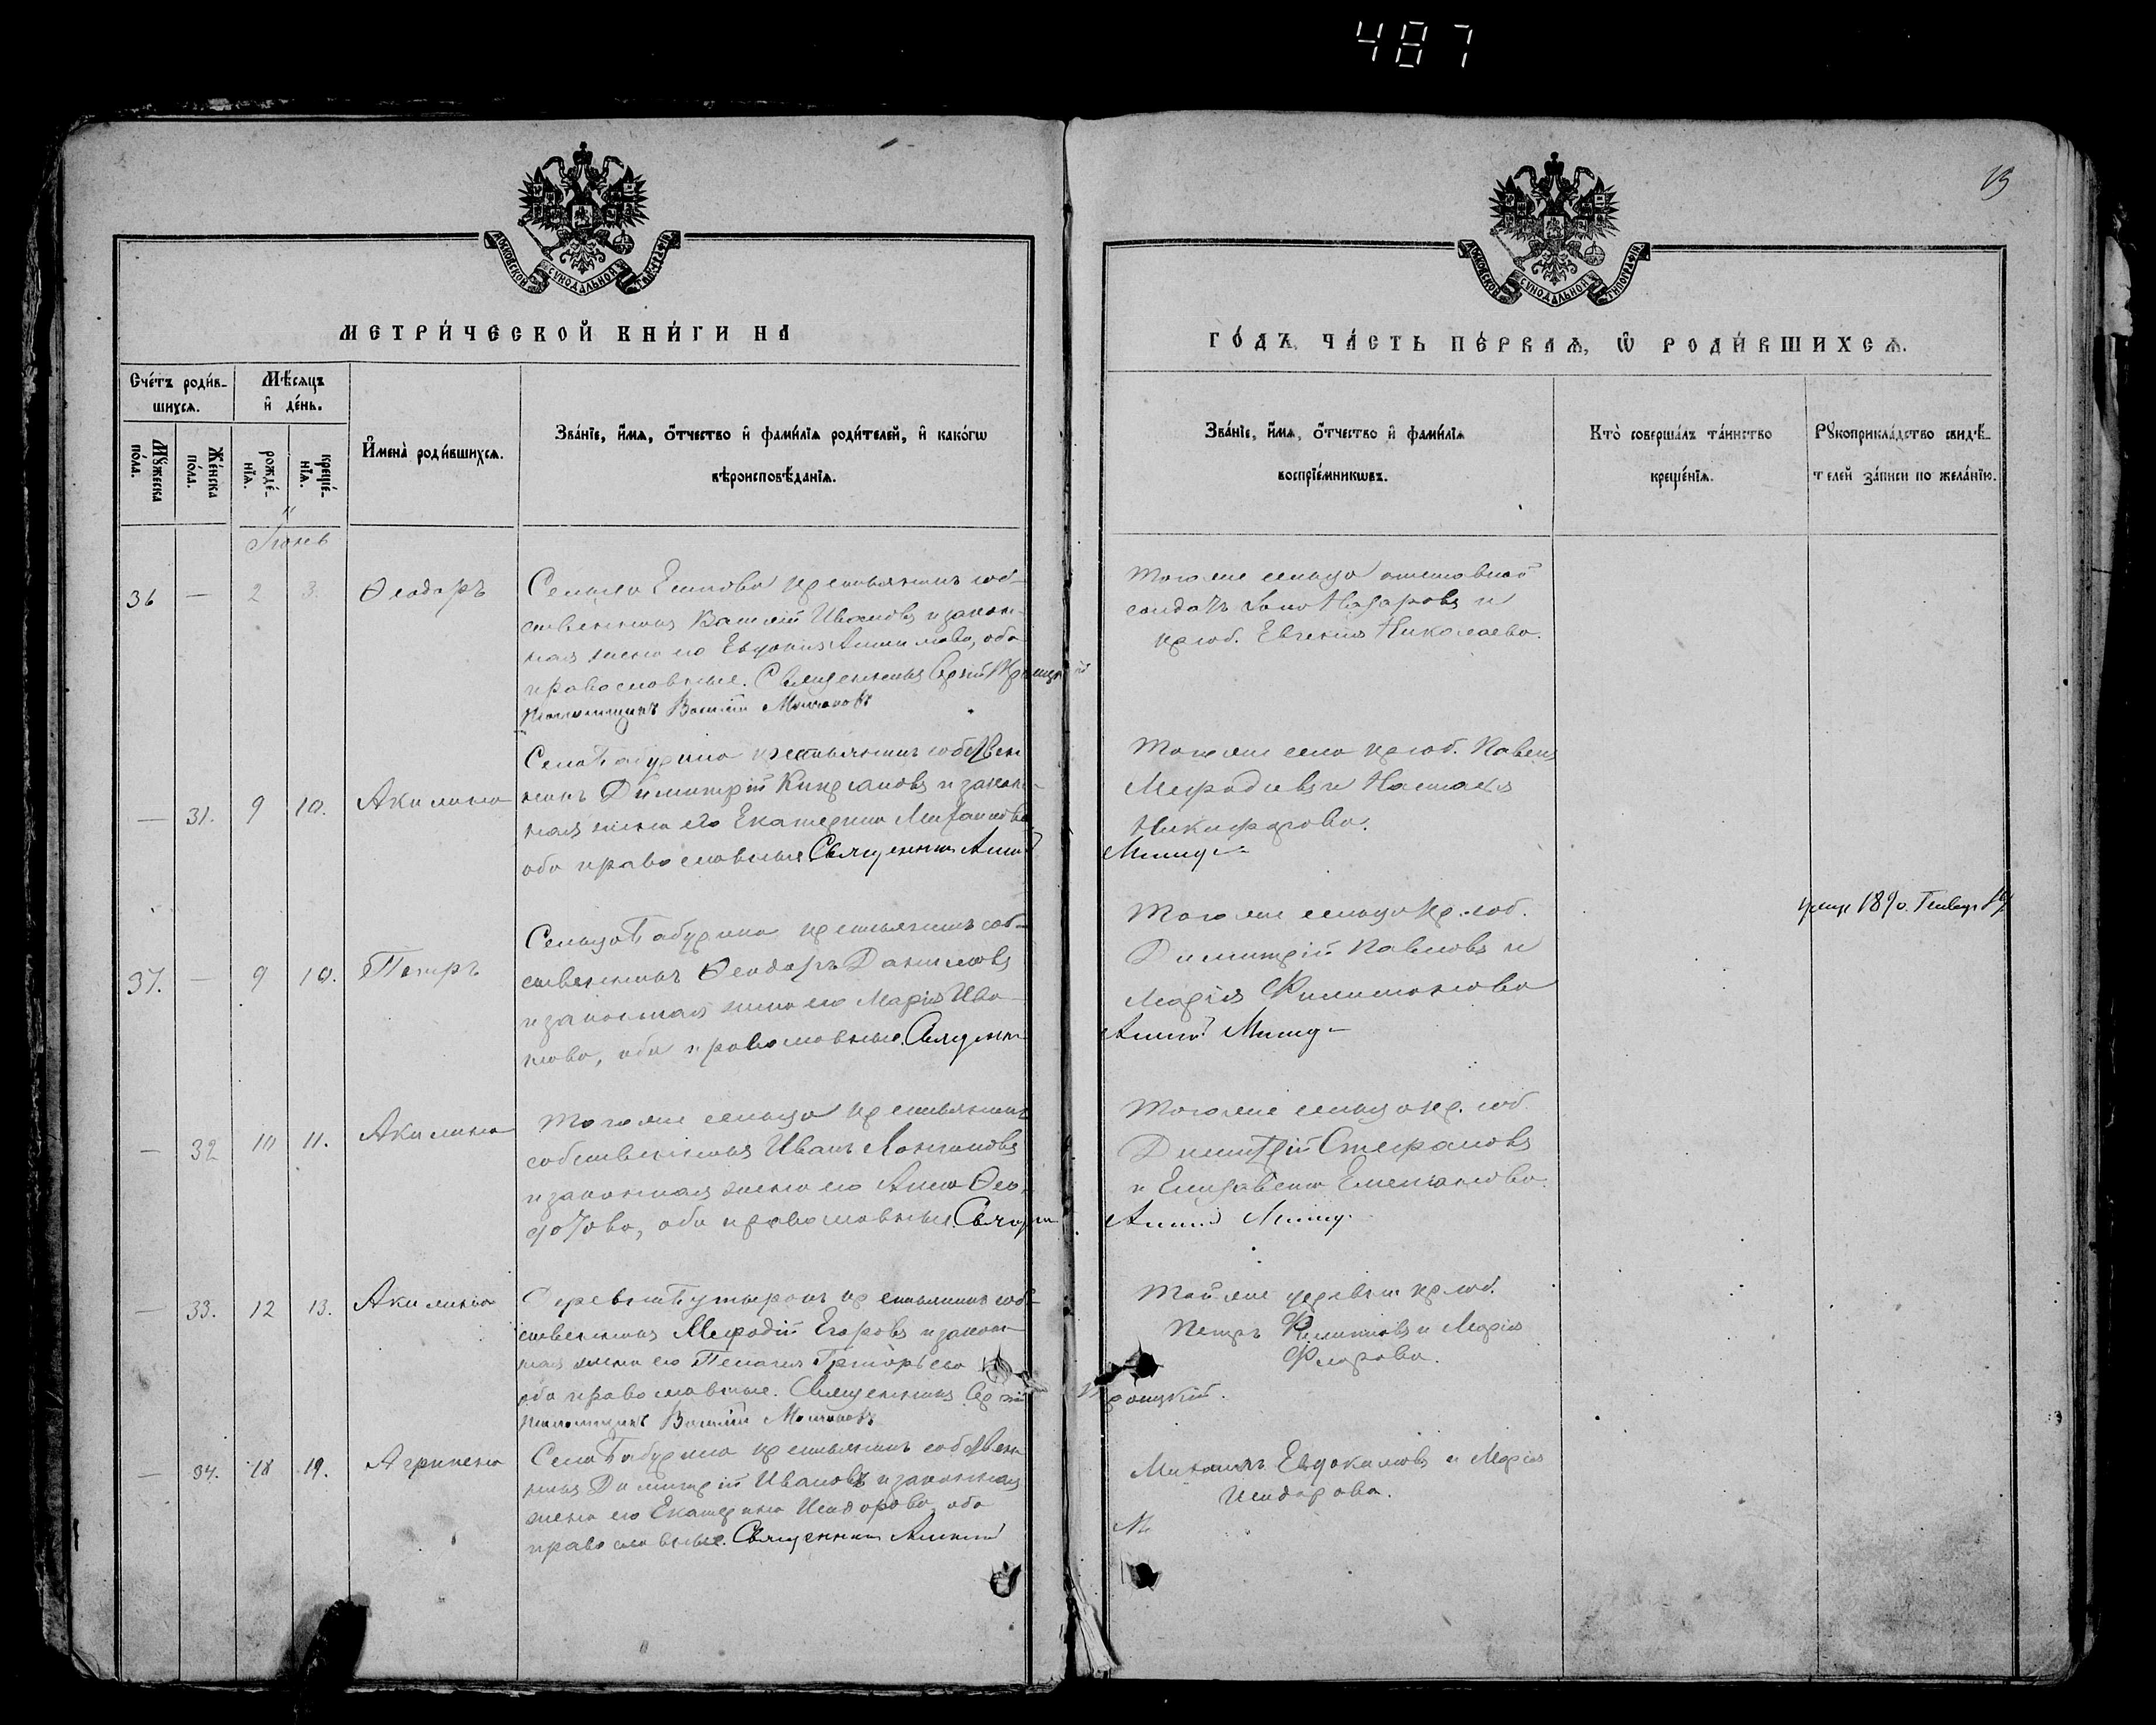 487
13
МОСКОВСКОЙ СѴНОДАЛЬНОЙ ТИПОГРАФІИ
МОСКОВСКОЙ СѴНОДАЛЬНОЙ ТИПОГРАФІИ
МЕТРИ́ЧЕСКОЙ КНИ́ГИ НА
ГО́ДЪ, ЧА́СТЬ ПЕ́РВАѦ, Ѡ҆ РОДИ́ВШИХСѦ.
Сче́тъ роди́в-
шихсѧ.
Мѣ́сѧцъ
и҆ де́нь.
Мꙋ́жеска
по́ла.
Же́нска
по́ла.
рожде́-
нїѧ.
креще́-
нїѧ.
И҆мена̀ роди́вшихсѧ.
Зва́нїе, и҆́мѧ, ѻ҆́тчество и҆ фами́лїѧ роди́телей, и҆ како́гѡ
вѣроисповѣ́данїѧ.
Зва́нїе, и҆́мѧ, ѻ҆́тчество и҆ фами́лїѧ
воспрїе́мникѡвъ.
Кто̀ соверша́лъ та́инство
креще́нїѧ.
Рꙋкоприкла́дство свидѣ́-
телей за́писи по жела́нїю.
Іюнь
36 — 2 3. Ѳеодоръ
Сельца крестьянинъ соб-
ственникъ Василій Ивановъ и закон-
ная жена его Евдокія оба
православные. Священникъ Сергій Троицкій
Василій
Того же сельца отставной
солдатъ Назаровъ и
кр. соб. Евгенія Николаева.
— 31. 9 10. Акилина
Села Бабурина крестьянинъ собствен-
никъ Димитрій Кипріановъ и закон-
ная жена его Екатерина
оба православные Священникъ
Того же села кр. соб. Павелъ
Меѳодіевъ и Наталія
Никифорова.
37. — 9 10. Петръ
Сельца Бабурина крестьянинъ соб-
ственникъ Ѳеодоръ Даниловъ
и законная жена его Марія Ива-
нова, оба православные. Священник
Того же сельца кр. соб.
Димитрій Павловъ и
Марія Филимонова
— 32 10 11. Акилина
Того же сельца крестьянинъ
собственникъ Иванъ Логиновъ
и законная жена его Анна Ѳео-
дотова, оба православные.
Того же сельца кр. соб.
Димитрій Стефановъ
и Елизавета Емельянова.
— 33. 12 13. Акилина
Деревни Бутырокъ крестьянинъ соб-
ственникъ Меѳодій Егоровъ и закон-
ная жена его Пелагія Григорьева
оба православные. Священникъ Сергій
Троицкій.
Василій
Той же деревни кр. соб.
Петръ Филипповъ и Марія
Флорова.
— 34. 18 19. Агрипина
Села Бабурина крестьянинъ собствен-
никъ Димитрій Ивановъ и законная
жена его Екатерина Исидорова, оба
православные. Священникъ
Михаилъ Евдокимовъ и Марія
Исидорова.